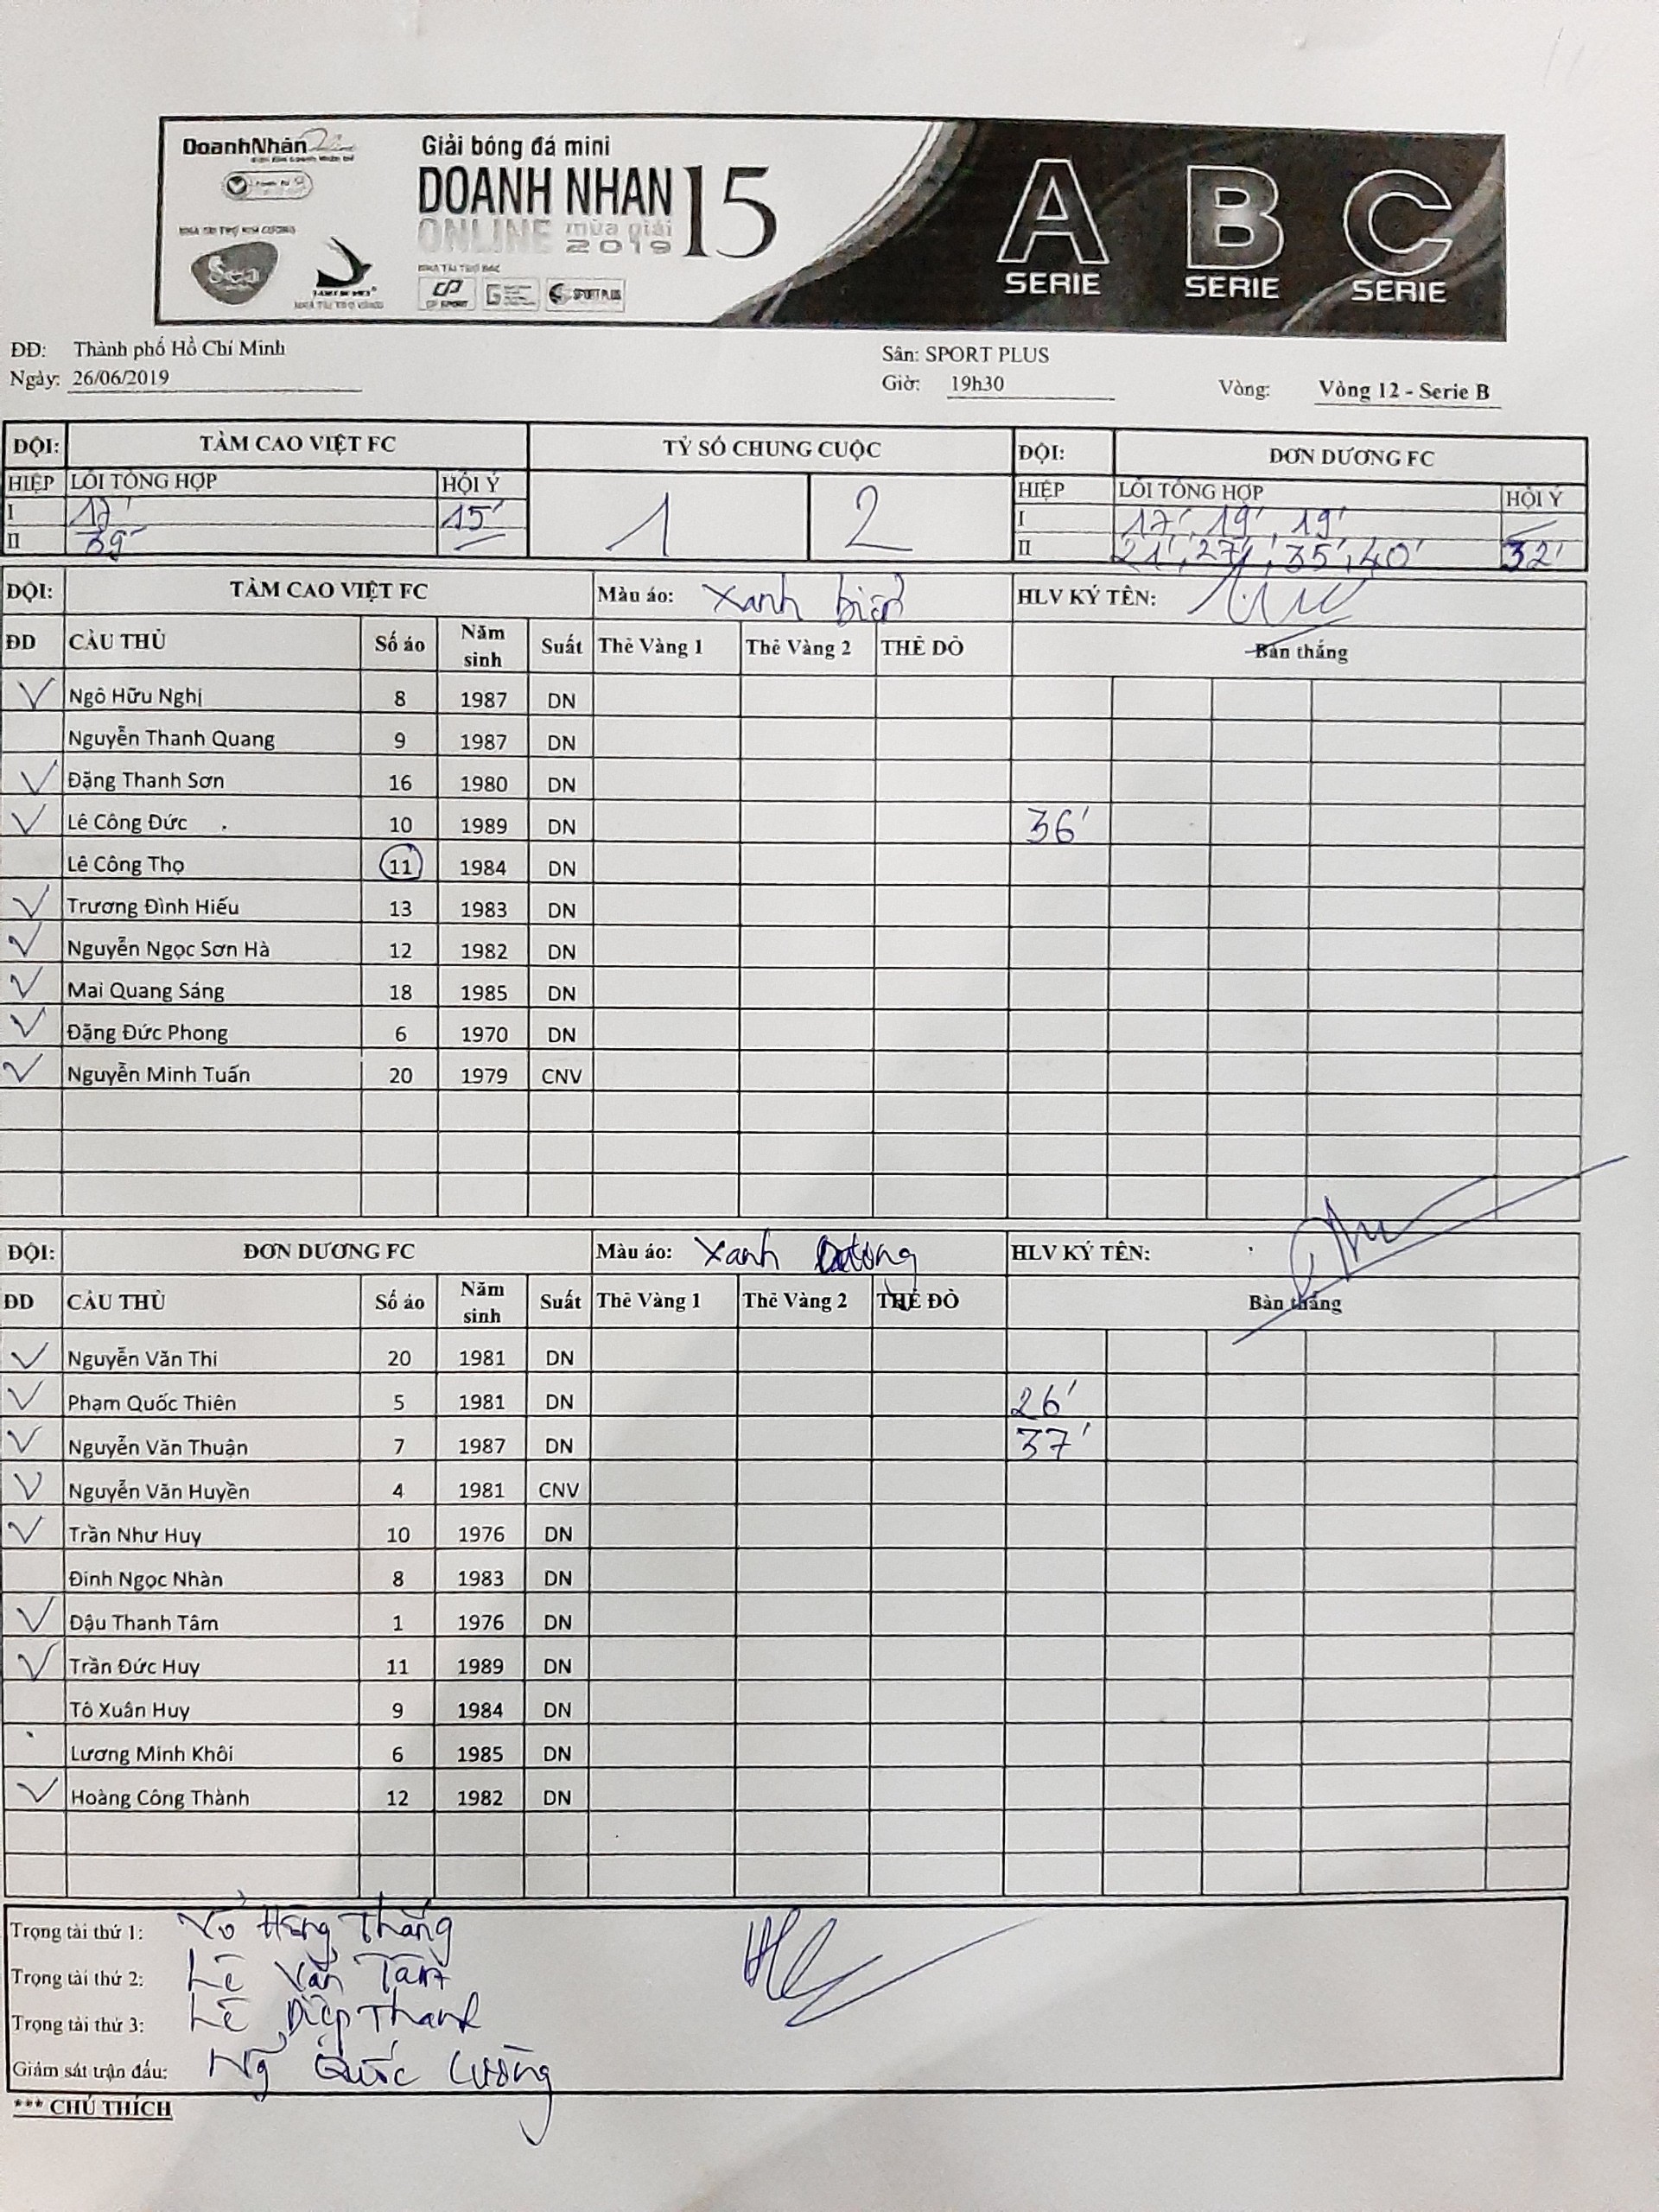 DoanhNhân
Giải bóng đá mini
DOANH NHAN 15
ONLINE mùa giải 2019
NHÀ TÀI TRỢ KIM CƯƠNG
NHÀ TÀI TRỢ BẠC
NHÀ TÀI TRỢ VÀNG
SPORT PLUS
A SERIE
B SERIE
C SERIE
ĐĐ: Thành phố Hồ Chí Minh Sân: SPORT PLUS
Ngày: 26/06/2019 Giờ: 19h30 Vòng: Vòng 12 - Serie B
ĐỘI: TẦM CAO VIỆT FC TỶ SỐ CHUNG CUỘC ĐỘI: ĐƠN DƯƠNG FC
HIỆP LỖI TỔNG HỢP HỘI Ý 1 2 HIỆP LỖI TỔNG HỢP HỘI Ý
I 17' 15' I 17', 19', 19'
II 39' II 21', 27', 35', 40' 32'
ĐỘI: TẦM CAO VIỆT FC Màu áo: Xanh biển HLV KÝ TÊN:
ĐD CẦU THỦ Số áo Năm sinh Suất Thẻ Vàng 1 Thẻ Vàng 2 THẺ ĐỎ Bàn thắng
Ngô Hữu Nghị 8 1987 DN
Nguyễn Thanh Quang 9 1987 DN
Đặng Thanh Sơn 16 1980 DN
Lê Công Đức 10 1989 DN 36'
Lê Công Thọ 11 1984 DN
Trương Đình Hiếu 13 1983 DN
Nguyễn Ngọc Sơn Hà 12 1982 DN
Mai Quang Sáng 18 1985 DN
Đặng Đức Phong 6 1970 DN
Nguyễn Minh Tuấn 20 1979 CNV
ĐỘI: ĐƠN DƯƠNG FC Màu áo: Xanh HLV KÝ TÊN:
ĐD CẦU THỦ Số áo Năm sinh Suất Thẻ Vàng 1 Thẻ Vàng 2 THẺ ĐỎ Bàn thắng
Nguyễn Văn Thi 20 1981 DN
Phạm Quốc Thiên 5 1981 DN 26'
Nguyễn Văn Thuận 7 1987 DN 37'
Nguyễn Văn Huyền 4 1981 CNV
Trần Như Huy 10 1976 DN
Đinh Ngọc Nhàn 8 1983 DN
Đậu Thanh Tâm 1 1976 DN
Trần Đức Huy 11 1989 DN
Tô Xuân Huy 9 1984 DN
Lương Minh Khôi 6 1985 DN
Hoàng Công Thành 12 1982 DN
Trọng tài thứ 1: Võ Hồng Thắng
Trọng tài thứ 2: Lê Văn Tâm
Trọng tài thứ 3: Lê Diệp Thanh
Giám sát trận đấu: Ng Quốc Cường
*** CHÚ THÍCH